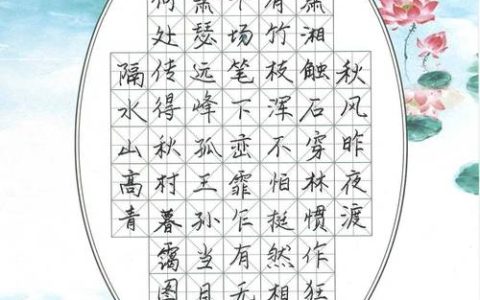 秋风昨夜渡
潇湘触石穿林惯作狂
有竹枝浑不怕挺然相
场笔下峦霏乍有无
萧瑟远峰孤王孙当日
何处传得秋村暮霭图
隔水山高青